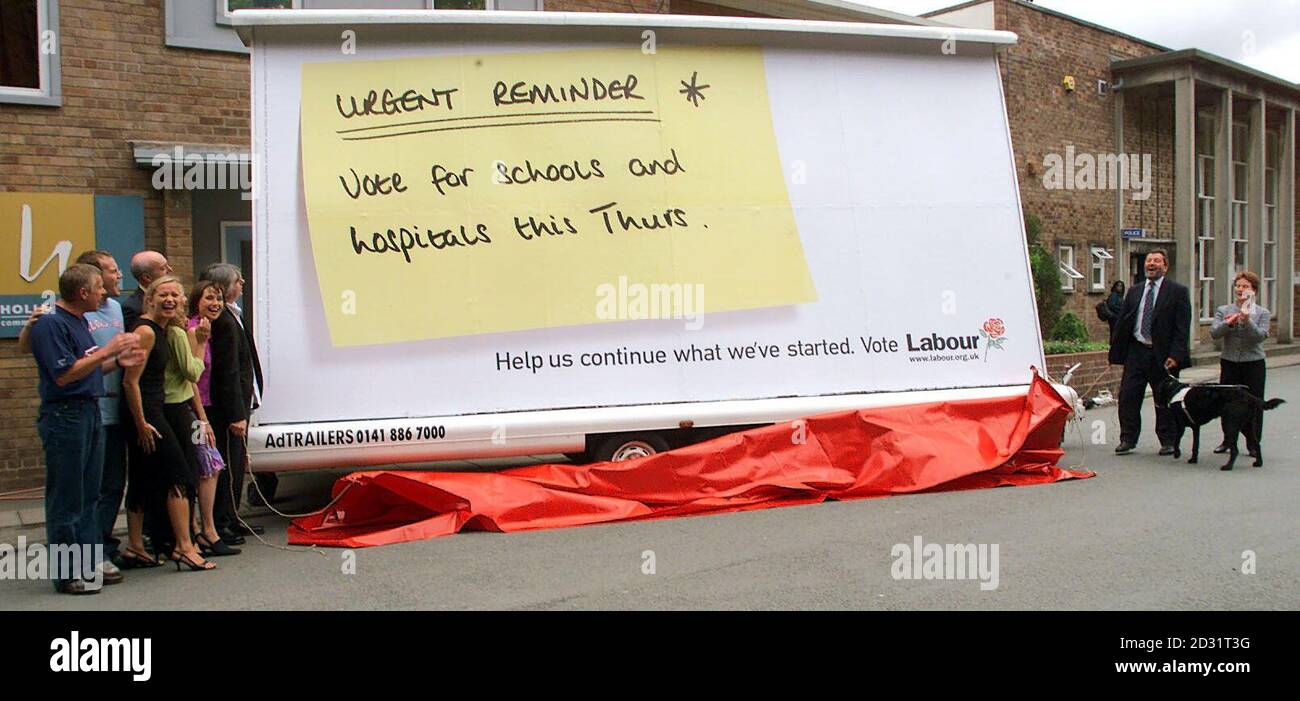 URGENT REMINDER *
Vote for schools and
hospitals this Thurs.
Help us continue what we've started. Vote Labour
www.labour.org.uk
AdTRAILERS 0141 886 7000
POLICE
a
alamy
Image ID: 2D31T3G
www.alamy.com